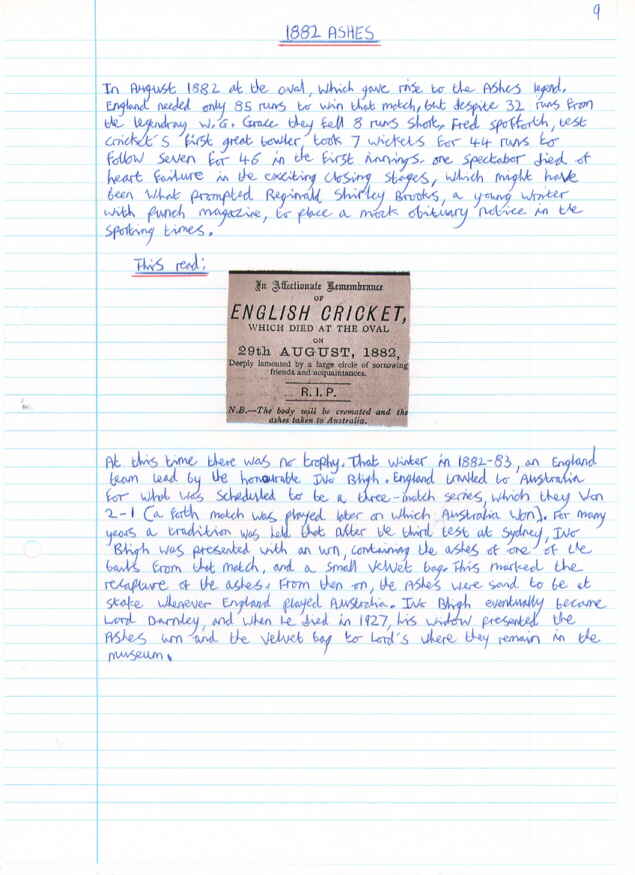 9
1882 ASHES
In August 1882 at the oval, which gave rise to the Ashes legend.
England needed only 85 runs to win that match, but despite 32 runs from
the legendray W.G. Grace they fell 8 runs short. Fred spofforth, test
cricket's first great bowler, took 7 wickets for 44 runs to
follow seven for 46 in the first innings. one spectator died of
heart failure in the exciting closing stages, which might have
been what prompted Reginald Shirley Brooks, a young writer
with punch magazine, to place a mock obituary notice in the
sporting times.
This read:
In Affectionate Remembrance
OF
ENGLISH CRICKET,
WHICH DIED AT THE OVAL
ON
29th AUGUST, 1882,
Deeply lamented by a large circle of sorrowing
friends and acquaintances.
R.I.P.
N.B.—The body will be cremated and the
ashes taken to Australia.
At this time there was no trophy. That winter in 1882-83, an England
team lead by the honourable Ivo Bligh. England travlled to Australia
for what was scheduled to be a three-match series, which they won
2-1 (a forth match was played later on which Australia won). For many
years a tradition was held that after the third test at Sydney, Ivo
Bligh was presented with an urn, containing the ashes of one of the
bails from that match, and a small velvet bag. This marked the
recapture of the ashes. From then on, the Ashes were said to be at
stake whenever England played Australia. Ivo Bligh eventually became
Lord Darnley, and when he died in 1927, his widow presented the
Ashes urn and the velvet bag to Lord's where they remain in the
museum.